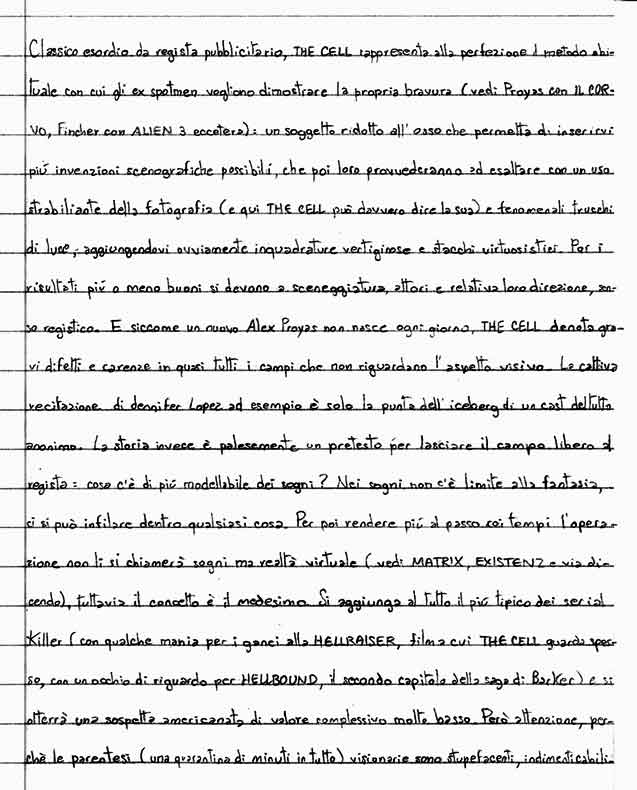 Classico esordio da regista pubblicitario, THE CELL rappresenta alla perfezione il metodo abi-
tuale con cui gli ex spotmen vogliono dimostrare la propria bravura (vedi Proyas con IL COR-
VO, Fincher con ALIEN 3 eccetera): un soggetto ridotto all'osso che permetta di inserirvi
più invenzioni scenografiche possibili, che poi loro provvederanno ad esaltare con un uso
strabiliante della fotografia (e qui THE CELL può davvero dire la sua) e fenomenali trucchi
di luce, aggiungendovi ovviamente inquadrature vertiginose e stacchi virtuosistici. Poi i
risultati più o meno buoni si devono a sceneggiatura, attori e relativa loro direzione, sen-
so registico. E siccome un nuovo Alex Proyas non nasce ogni giorno, THE CELL denota gra-
vi difetti e carenze in quasi tutti i campi che non riguardano l'aspetto visivo. La cattiva
recitazione di Jennifer Lopez ad esempio è solo la punta dell'iceberg di un cast del tutto
anonimo. La storia invece è palesemente un pretesto per lasciare il campo libero al
regista: cosa c'è di più modellabile dei sogni? Nei sogni non c'è limite alla fantasia,
ci si può infilare dentro qualsiasi cosa. Per poi rendere più al passo coi tempi l'opera-
zione non li si chiamerà sogni ma realtà virtuale (vedi MATRIX, EXISTENZ e via di-
cendo), tuttavia il concetto è il medesimo. Si aggiunga al tutto il più tipico dei serial
killer (con qualche mania per i ganci alla HELLRAISER, film a cui THE CELL guarda spes-
so, con un occhio di riguardo per HELLBOUND, il secondo capitolo della saga di Barker) e si
otterrà una sospetta americanata di valore complessivo molto basso. Però attenzione, per-
chè le parentesi (una quarantina di minuti in tutto) visionarie sono stupefacenti, indimenticabili.